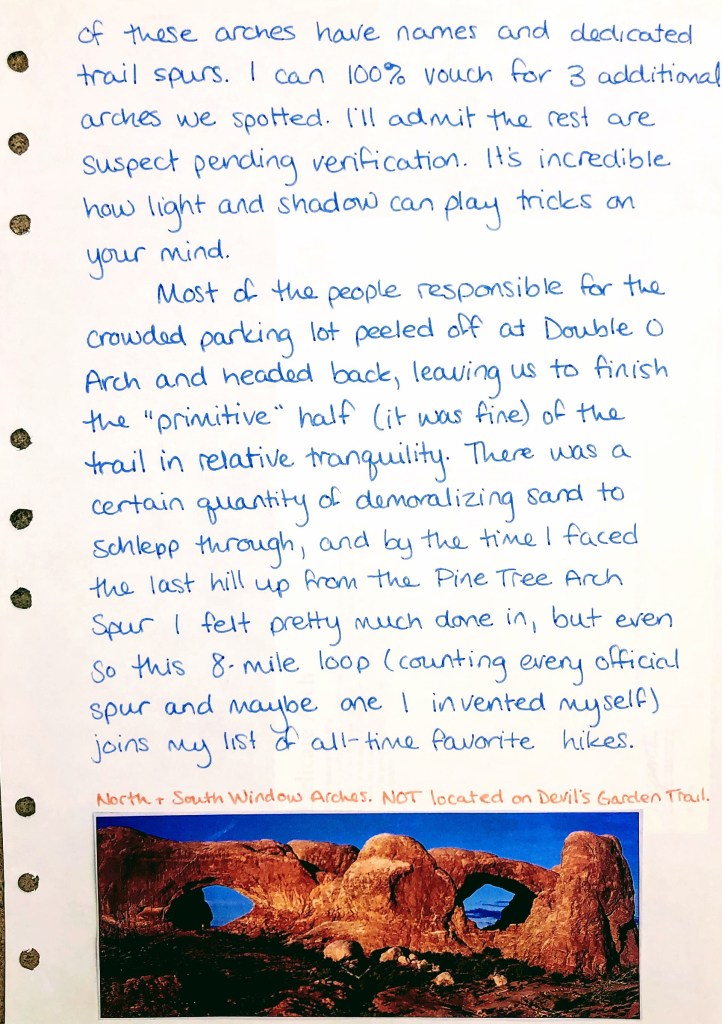 of these arches have names and dedicated
trail spurs. I can 100% vouch for 3 additional
arches we spotted. I'll admit the rest are
suspect pending verification. It's incredible
how light and shadow can play tricks on
your mind.
Most of the people responsible for the
crowded parking lot peeled off at Double O
Arch and headed back, leaving us to finish
the "primitive" half (it was fine) of the
trail in relative tranquility. There was a
certain quantity of demoralizing sand to
schlepp through, and by the time I faced
the last hill up from the Pine Tree Arch
Spur I felt pretty much done in, but even
so this 8-mile loop (counting every official
spur and maybe one I invented myself)
joins my list of all-time favorite hikes.
North + South Window Arches. NOT located on Devil's Garden Trail.